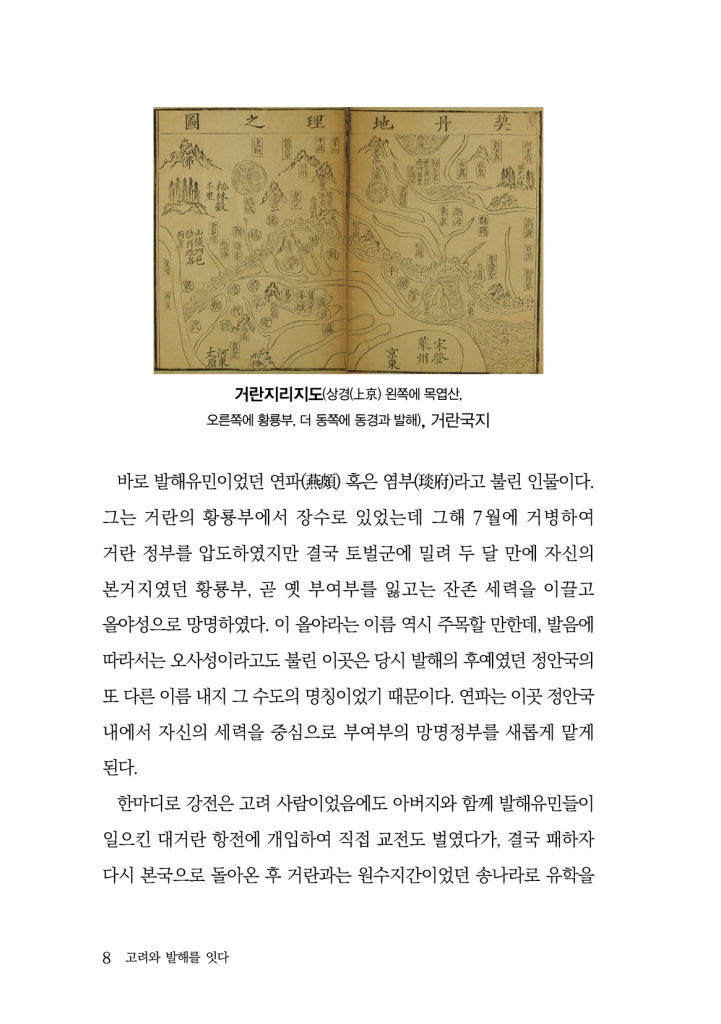 契丹地理之圖
松林數
千里
東京
渤海
女真
西京
山後四邑
河東
太原
京東
宋登
萊州
山東
北海
거란지리지도(상경(上京) 왼쪽에 목엽산,
오른쪽에 황룡부, 더 동쪽에 동경과 발해), 거란국지
바로 발해유민이었던 연파(燕頗) 혹은 염부(琰府)라고 불린 인물이다.
그는 거란의 황룡부에서 장수로 있었는데 그해 7월에 거병하여
거란 정부를 압도하였지만 결국 토벌군에 밀려 두 달 만에 자신의
본거지였던 황룡부, 곧 옛 부여부를 잃고는 잔존 세력을 이끌고
올야성으로 망명하였다. 이 올야라는 이름 역시 주목할 만한데, 발음에
따라서는 오사성이라고도 불린 이곳은 당시 발해의 후예였던 정안국의
또 다른 이름 내지 그 수도의 명칭이었기 때문이다. 연파는 이곳 정안국
내에서 자신의 세력을 중심으로 부여부의 망명정부를 새롭게 맡게
된다.
한마디로 강전은 고려 사람이었음에도 아버지와 함께 발해유민들이
일으킨 대거란 항전에 개입하여 직접 교전도 벌였다가, 결국 패하자
다시 본국으로 돌아온 후 거란과는 원수지간이었던 송나라로 유학을
8 고려와 발해를 잇다